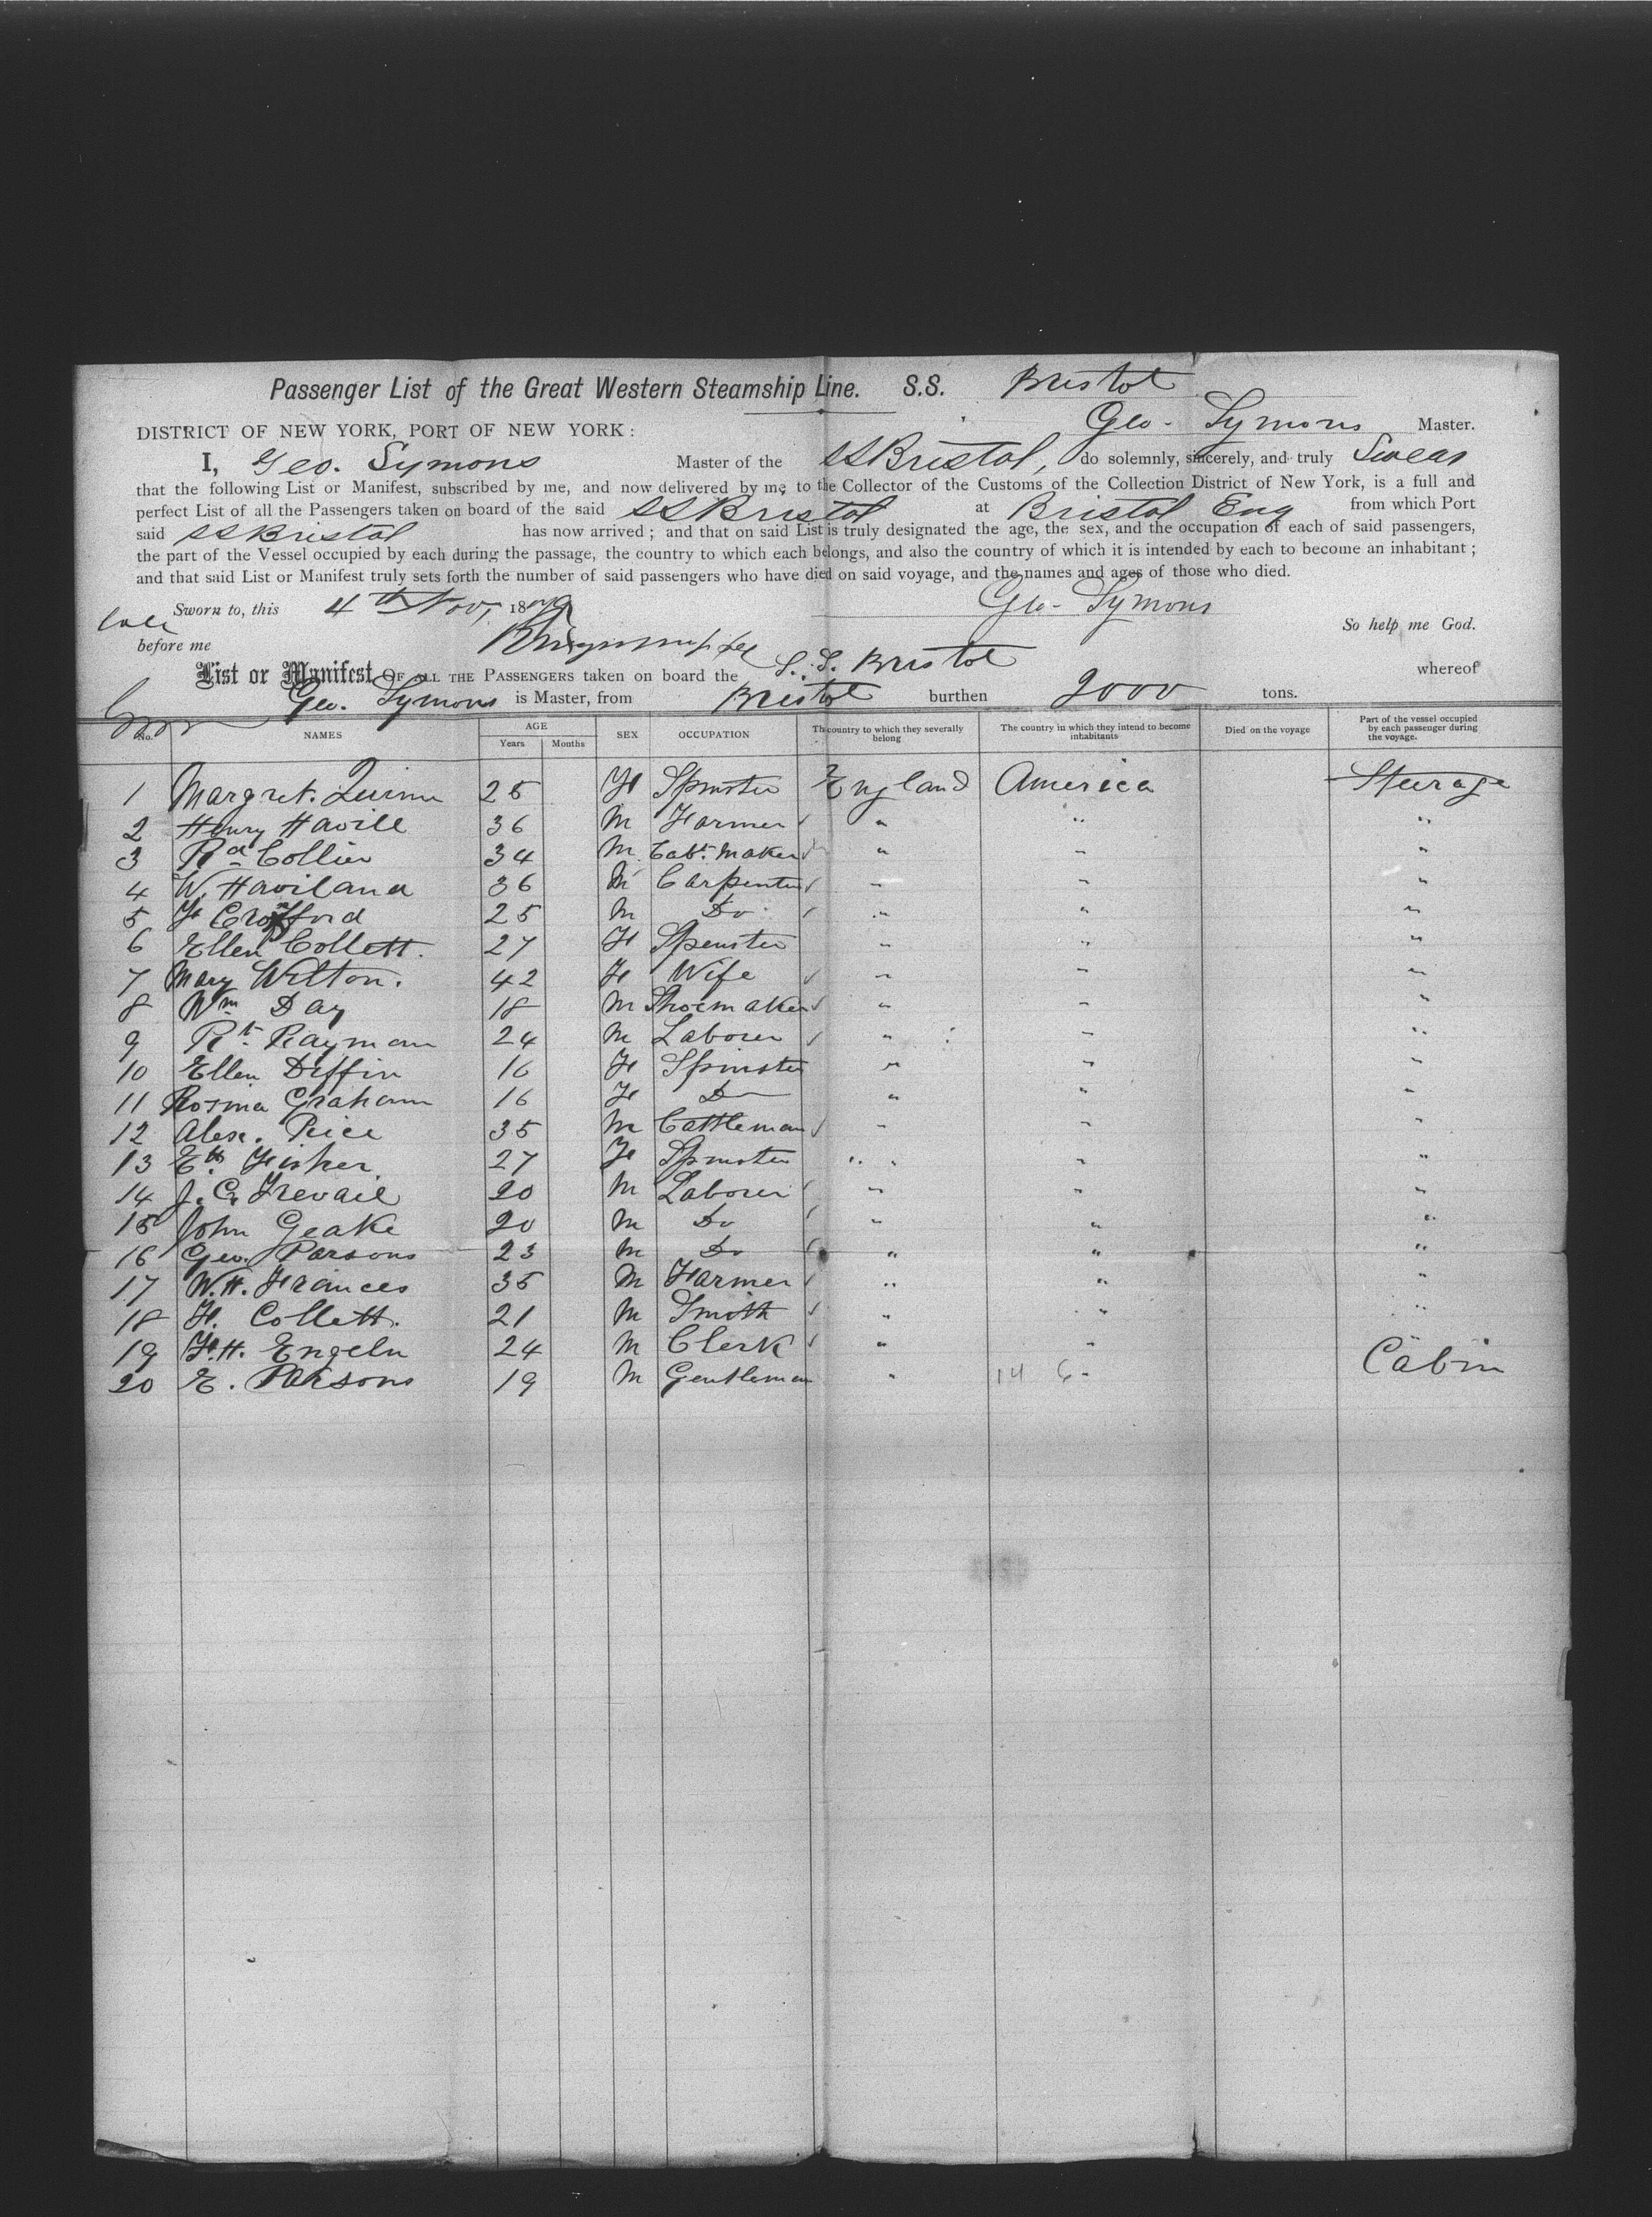 Passenger List of the Great Western Steamship Line. S.S. Bristol
DISTRICT OF NEW YORK, PORT OF NEW YORK: Geo. Symons Master.
I, Geo. Symons Master of the SS Bristol, do solemnly, sincerely, and truly Swear
that the following List or Manifest, subscribed by me, and now delivered by me to the Collector of the Customs of the Collection District of New York, is a full and
perfect List of all the Passengers taken on board of the said SS Bristol at Bristol Eng from which Port
said SS Bristol has now arrived; and that on said List is truly designated the age, the sex, and the occupation of each of said passengers,
the part of the Vessel occupied by each during the passage, the country to which each belongs, and also the country of which it is intended by each to become an inhabitant;
and that said List or Manifest truly sets forth the number of said passengers who have died on said voyage, and the names and ages of those who died.
Sworn to, this 4th Nov, 18 Geo. Symons
So help me God.
before me
List or Manifest OF ALL THE PASSENGERS taken on board the S.S. Bristol whereof
Geo. Symons is Master, from Bristol burthen 2000 tons.
No. NAMES AGE Years Months SEX OCCUPATION The country to which they severally belong The country in which they intend to become inhabitants Died on the voyage Part of the vessel occupied by each passenger during the voyage.
1 Margret. Quinn 25 F Spinster England America Steerage
2 Henry Havill 36 M Farmer " " "
3 Rd Collier 34 M Cabt. Maker " " "
4 W. Haviland 36 M Carpenter " " "
5 F 25 M Do " " "
6 Ellen Collett. 27 F Spinster " " "
7 Mary Wilton. 42 F Wife " " "
8 Wm Day 18 M Shoemaker " " "
9 Rt. Rayman 24 M Laborer " " "
10 Ellen Diffin 16 F Spinster " " "
11 Rosina Graham 16 F Do " " "
12 Alex. Price 35 M Cattleman " " "
13 Eth Fisher 27 F Spinster " " "
14 J. C. Trevail 20 M Laborer " " "
15 John Geake 20 M Do " " "
16 Geo. Parsons 23 M Do " " "
17 W.H. Frances 35 M Farmer " " "
18 F. Collett. 21 M Smith " " "
19 F.H. Engeln 24 M Clerk " "
20 E. Parsons 19 M Gentleman " 14 6 - Cabin